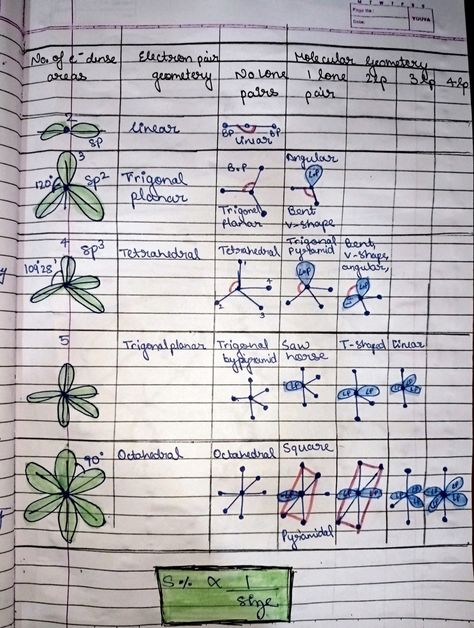 Page No.
Date
YOUVA
No. of e⁻ dense areas
Electron pair geometery
Molecular Geometery
No Lone pairs
1 lone pair
2 lp
3 lp
4 lp
2
SP
Linear
BP BP
Linear
3
120° SP2
Trigonal planar
B.P
Trigonal Planar
Angular
LP
Bent V-shape
4
SP3
109°28'
Tetrahedral
Tetrahedral
1
2
3
4
Trigonal Pyramid
LP
Bent, V-shape, angular,
5
Trigonal planar
Trigonal bypyramid
Saw horse
LP
T-shaped
LP LP
Linear
LP
90°
Octahedral
Octahedral
Square
LP
Pyramidal
LP LP
LP LP
LP LP
S% ∝ 1